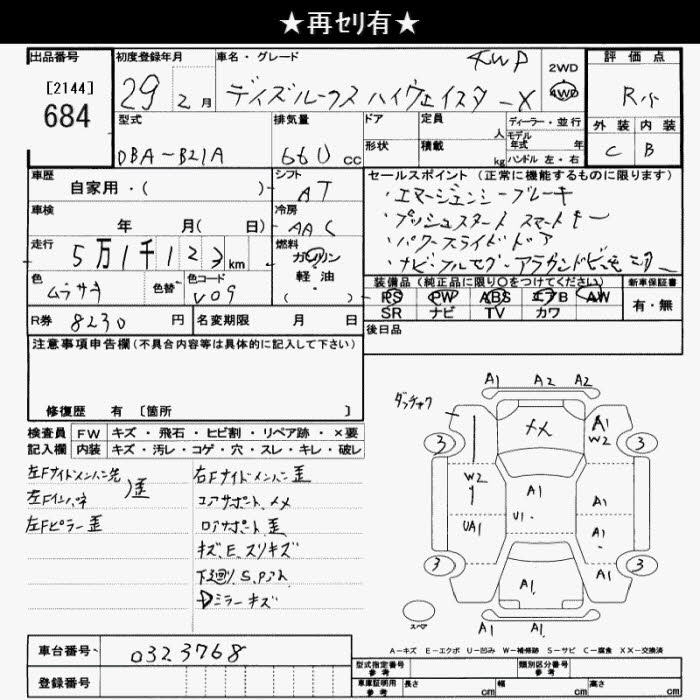 ★再ｾﾘ有★
出品番号
[2144]
684
初度登録年月
29年 2月
車名・グレード
4WD
デイズルークス ハイウェイスター X
2WD
4WD
評価点
R
外装 内装
C B
型式
DBA-B21A
排気量
660 cc
ドア
形状
定員
人
積載
kg
ディーラー・並行
モデル
年式 年
ハンドル 左・右
車歴
自家用・( )
シフト
AT
車検
年 月( 日)
冷房
AAC
走行
5万1千123km
燃料
ガソリン
軽・油
( )
色
ムラサキ
色替
色コード
V09
セールスポイント (正常に機能するものに限ります)
・エマージェンシーブレーキ
・プッシュスタート スマートキー
・パワースライドドア
・ナビ・フルセグ・アラウンドビューモニター
装備品 (純正品に限り○をつけてください)
PS PW ABS エアB AW
SR ナビ TV カワ
新車保証書
有・無
R券 8230 円
名変期限 月 日
後日品
注意事項申告欄 (不具合内容等は具体的に記入して下さい)
修復歴 有 〔箇所 〕
検査員
記入欄
FW キズ・飛石・ヒビ割・リペア跡・×要
内装 キズ・汚レ・コゲ・穴・スレ・キレ・破レ
左Fサイドメンバー先
左Fインパネ
)歪
左Fピラー歪
右Fサイドメンバー歪
コアサポート メメ
ロアサポート 歪
キズ、E、スリキズ
下廻リ S、Pヌケ
Dミラーキズ
ダッチャク
A1 A2 A2
メメ
A1
W2
3 3
W2
A1
A1
UA1
U1
A1
3 3
A1
A1
A1 A1
スペア
A－キズ E－エクボ U－凹み W－補修跡 S－サビ C－腐食 XX－交換済
車台番号
0323768
登録番号
型式指定番号
参考
類別区分番号
参考
車庫証明用
参考
長さ cm
幅 cm
高さ cm